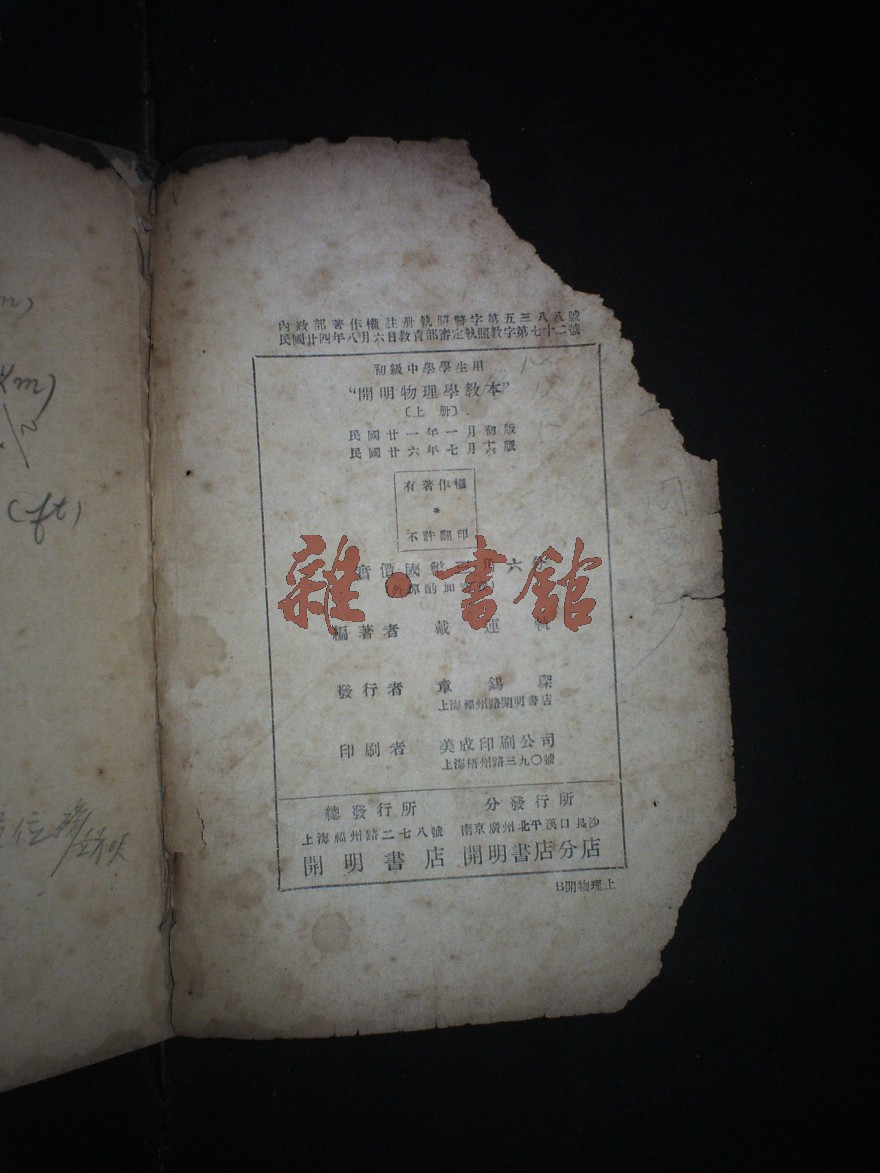 m)
m)
(ft)
位
內政部著作權註册執照警字第五三八八號
民國廿四年八月六日教育部審定執照教字第七十二號
初級中學學生用
“開明物理學教本”
〔上册〕
民國廿一年一月初版
民國廿六年七月六版
有著作權
*
不許翻印
實價國幣 角六分
(外埠酌加
雜·書館
編著者 戴運軌
發行者 章錫琛
上海福州路開明書店
印刷者 美成印刷公司
上海梧州路三九〇號
總發行所 分發行所
上海福州路二七八號 南京廣州北平漢口長沙
開明書店 開明書店分店
B開物理上
周